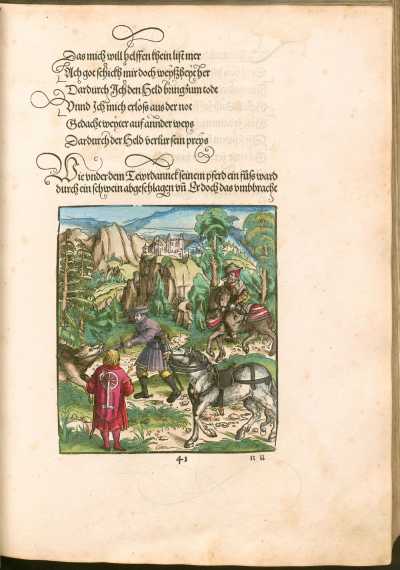 Das mich will helffen khein list mer
Ach got schickh mir doch weyßheyt her
Dardurch Ich den Held bring zum tode
Unnd Ich mich erloß aus der not
Gedacht weyter auf annder weys
Dardurch der Held verlur sein preys
Wie vnder dem Tewrdannck seinen pferd ein fůß ward
durch ein schwein abgeschlagen vn̄ Er doch das vmbbrachte
41
n ii